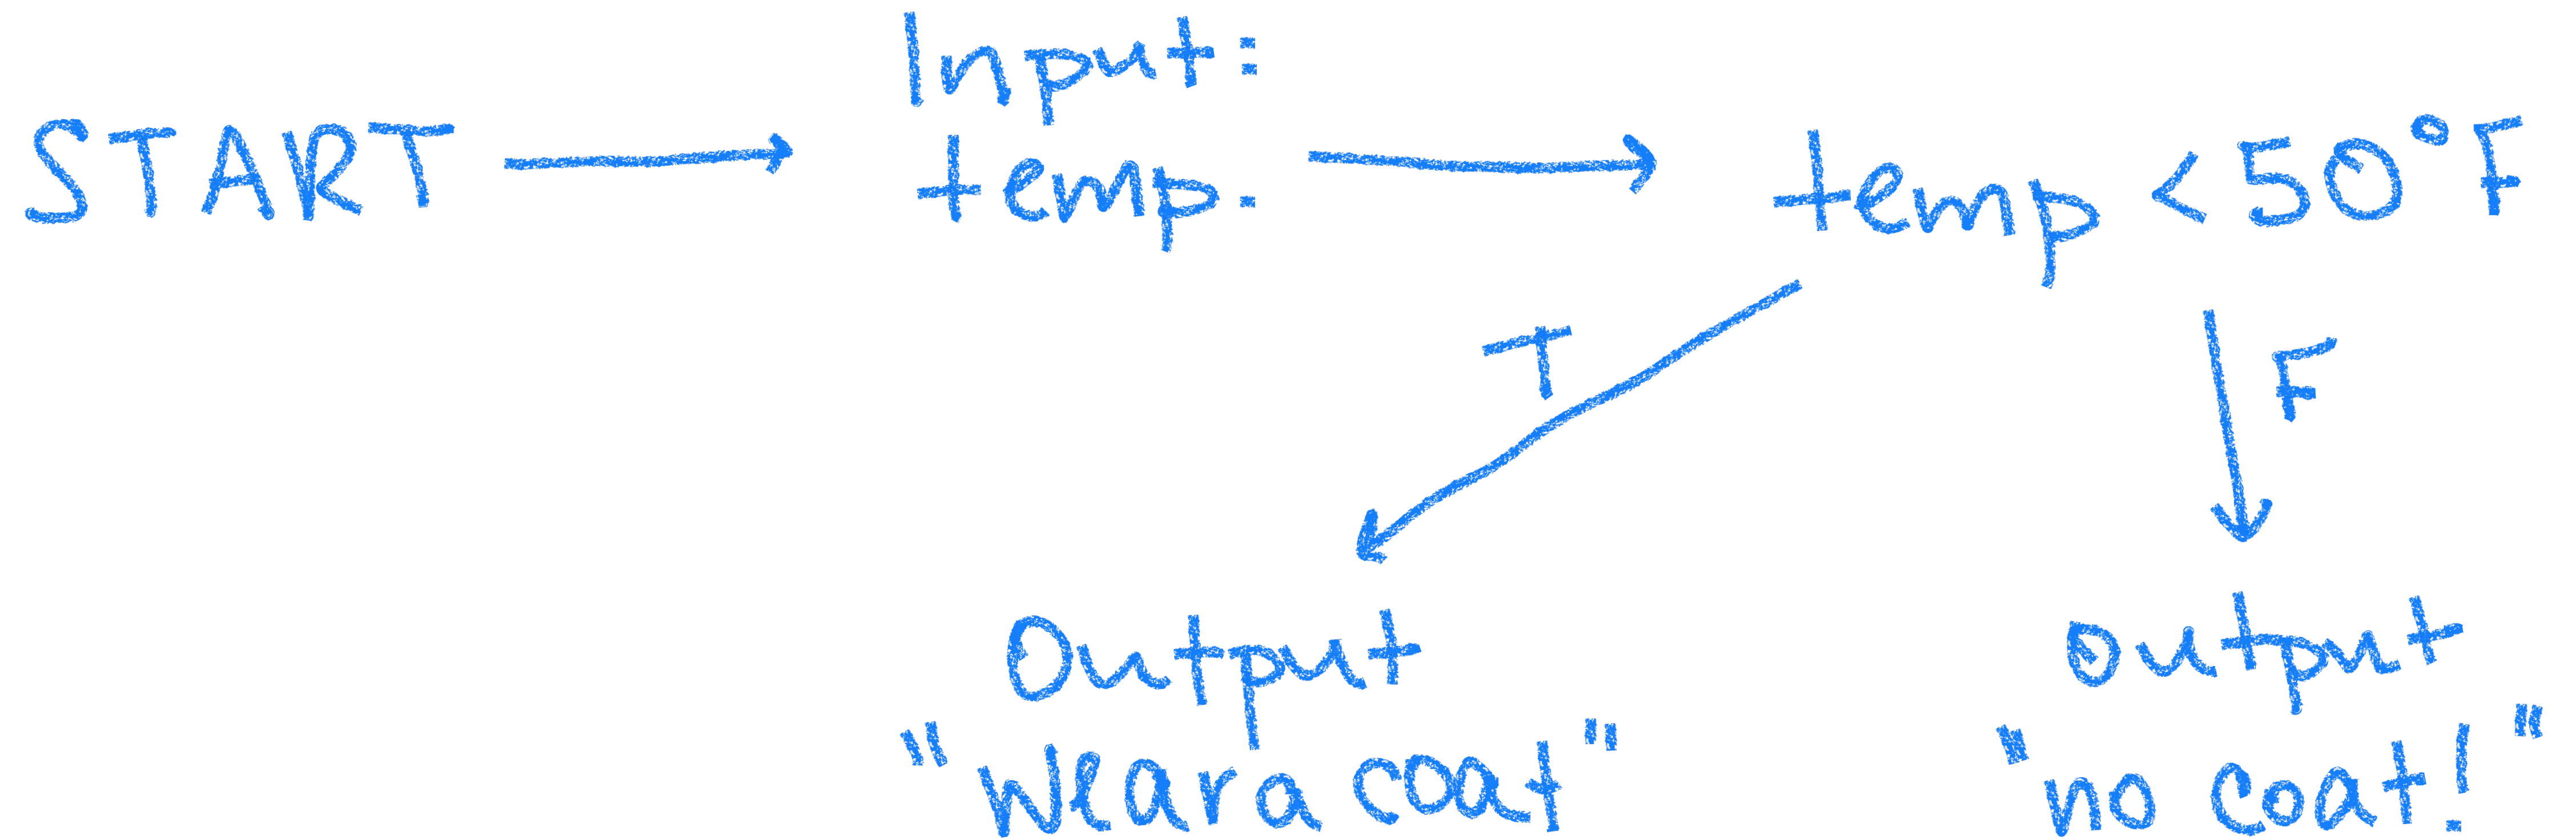 START
Input:
temp.
temp < 50°F
T
F
Output
"wear a coat"
output
"no coat!"